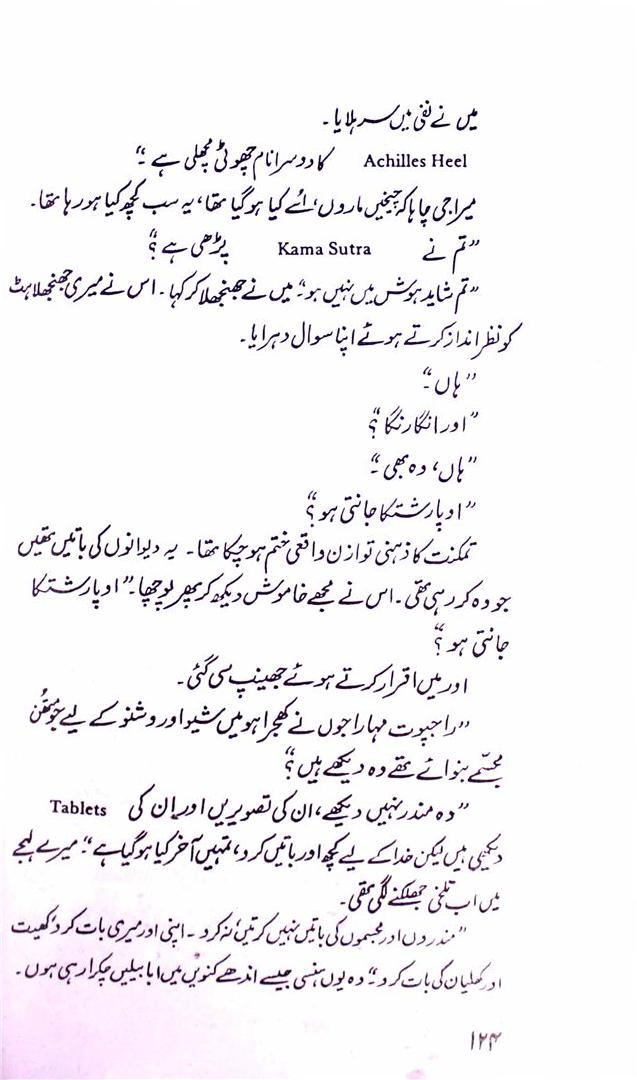 میں نے نفی میں سر ہلایا۔
Achilles Heel کا دوسرا نام چھوٹی مچھلی ہے ۔“
میرا جی چاہا کہ چیخیں ماروں، اُسے کیا ہو گیا تھا، یہ سب کچھ کیا ہو رہا تھا۔
”تم نے Kama Sutra پڑھی ہے؟“
”تم شاید ہوش میں نہیں ہو۔“ میں نے جھنجھلا کر کہا۔ اس نے میری جھنجھلاہٹ
کو نظر انداز کرتے ہوئے اپنا سوال دہرایا۔
”ہاں۔“
”اور انگارنگا؟“
”ہاں، وہ بھی۔“
”اوپارشتکا جانتی ہو؟“
تمکنت کا ذہنی توازن واقعی ختم ہو چکا تھا۔ یہ دیوانوں کی باتیں تھیں
جو وہ کر رہی تھی۔ اس نے مجھے خاموش دیکھ کر پھر پوچھا۔ ”اوپارشتکا
جانتی ہو؟“
اور میں اقرار کرتے ہوئے جھینپ سی گئی۔
”راجپوت مہاراجوں نے کھجراہو میں شیو اور وشنو کے لیے جو
مجسّمے بنوائے تھے وہ دیکھے ہیں؟“
”وہ مندر نہیں دیکھے، ان کی تصویریں اور ان کی Tablets
دیکھی ہیں لیکن خدا کے لیے کچھ اور باتیں کرو، تمہیں آخر کیا ہو گیا ہے۔“ میرے لہجے
میں اب تلخی جھلکنے لگی تھی۔
”مندروں اور مجسموں کی باتیں نہیں کرتیں، نہ کرو۔ اپنی اور میری بات کرو، کھیت
اور کھلیان کی بات کرو۔“ وہ یوں ہنسی جیسے اندھے کنویں میں ابابیلیں چکرا رہی ہوں۔
۱۲۴